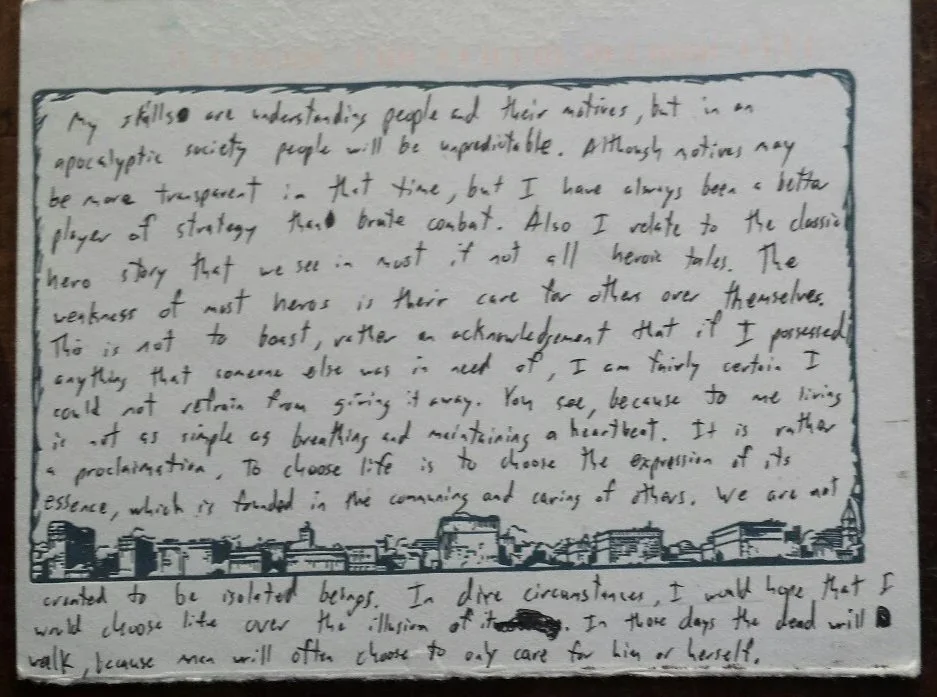 My skills are understanding people and their motives, but in an
apocalyptic society people will be unpredictable. Although motives may
be more transparent in that time, but I have always been a better
player of strategy than brute combat. Also I relate to the classic
hero story that we see in most if not all heroic tales. The
weakness of most heros is their care for others over themselves.
This is not to boast, rather an acknowledgement that if I possessed
anything that someone else was in need of, I am fairly certain I
could not refrain from giving it away. You see, because to me living
is not as simple as breathing and maintaining a heartbeat. It is rather
a proclaimation, To choose life is to choose the expression of its
essence, which is founded in the communing and caring of others. We are not
created to be isolated beings. In dire circumstances, I would hope that I
would choose life over the illusion of it. In those days the dead will
walk, because men will often choose to only care for him or herself.